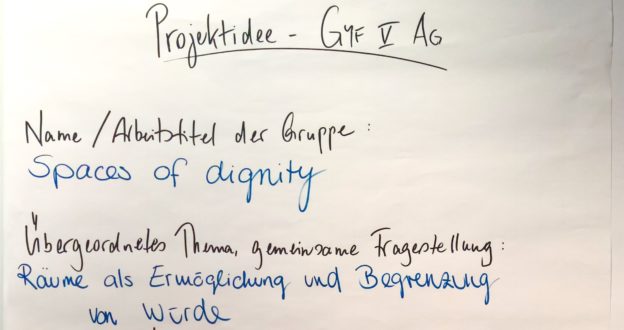 Projektidee - GYF V AG
Name / Arbeitstitel der Gruppe:
Spaces of dignity
Übergeordnetes Thema, gemeinsame Fragestellung:
Räume als Ermöglichung und Begrenzung
von Würde